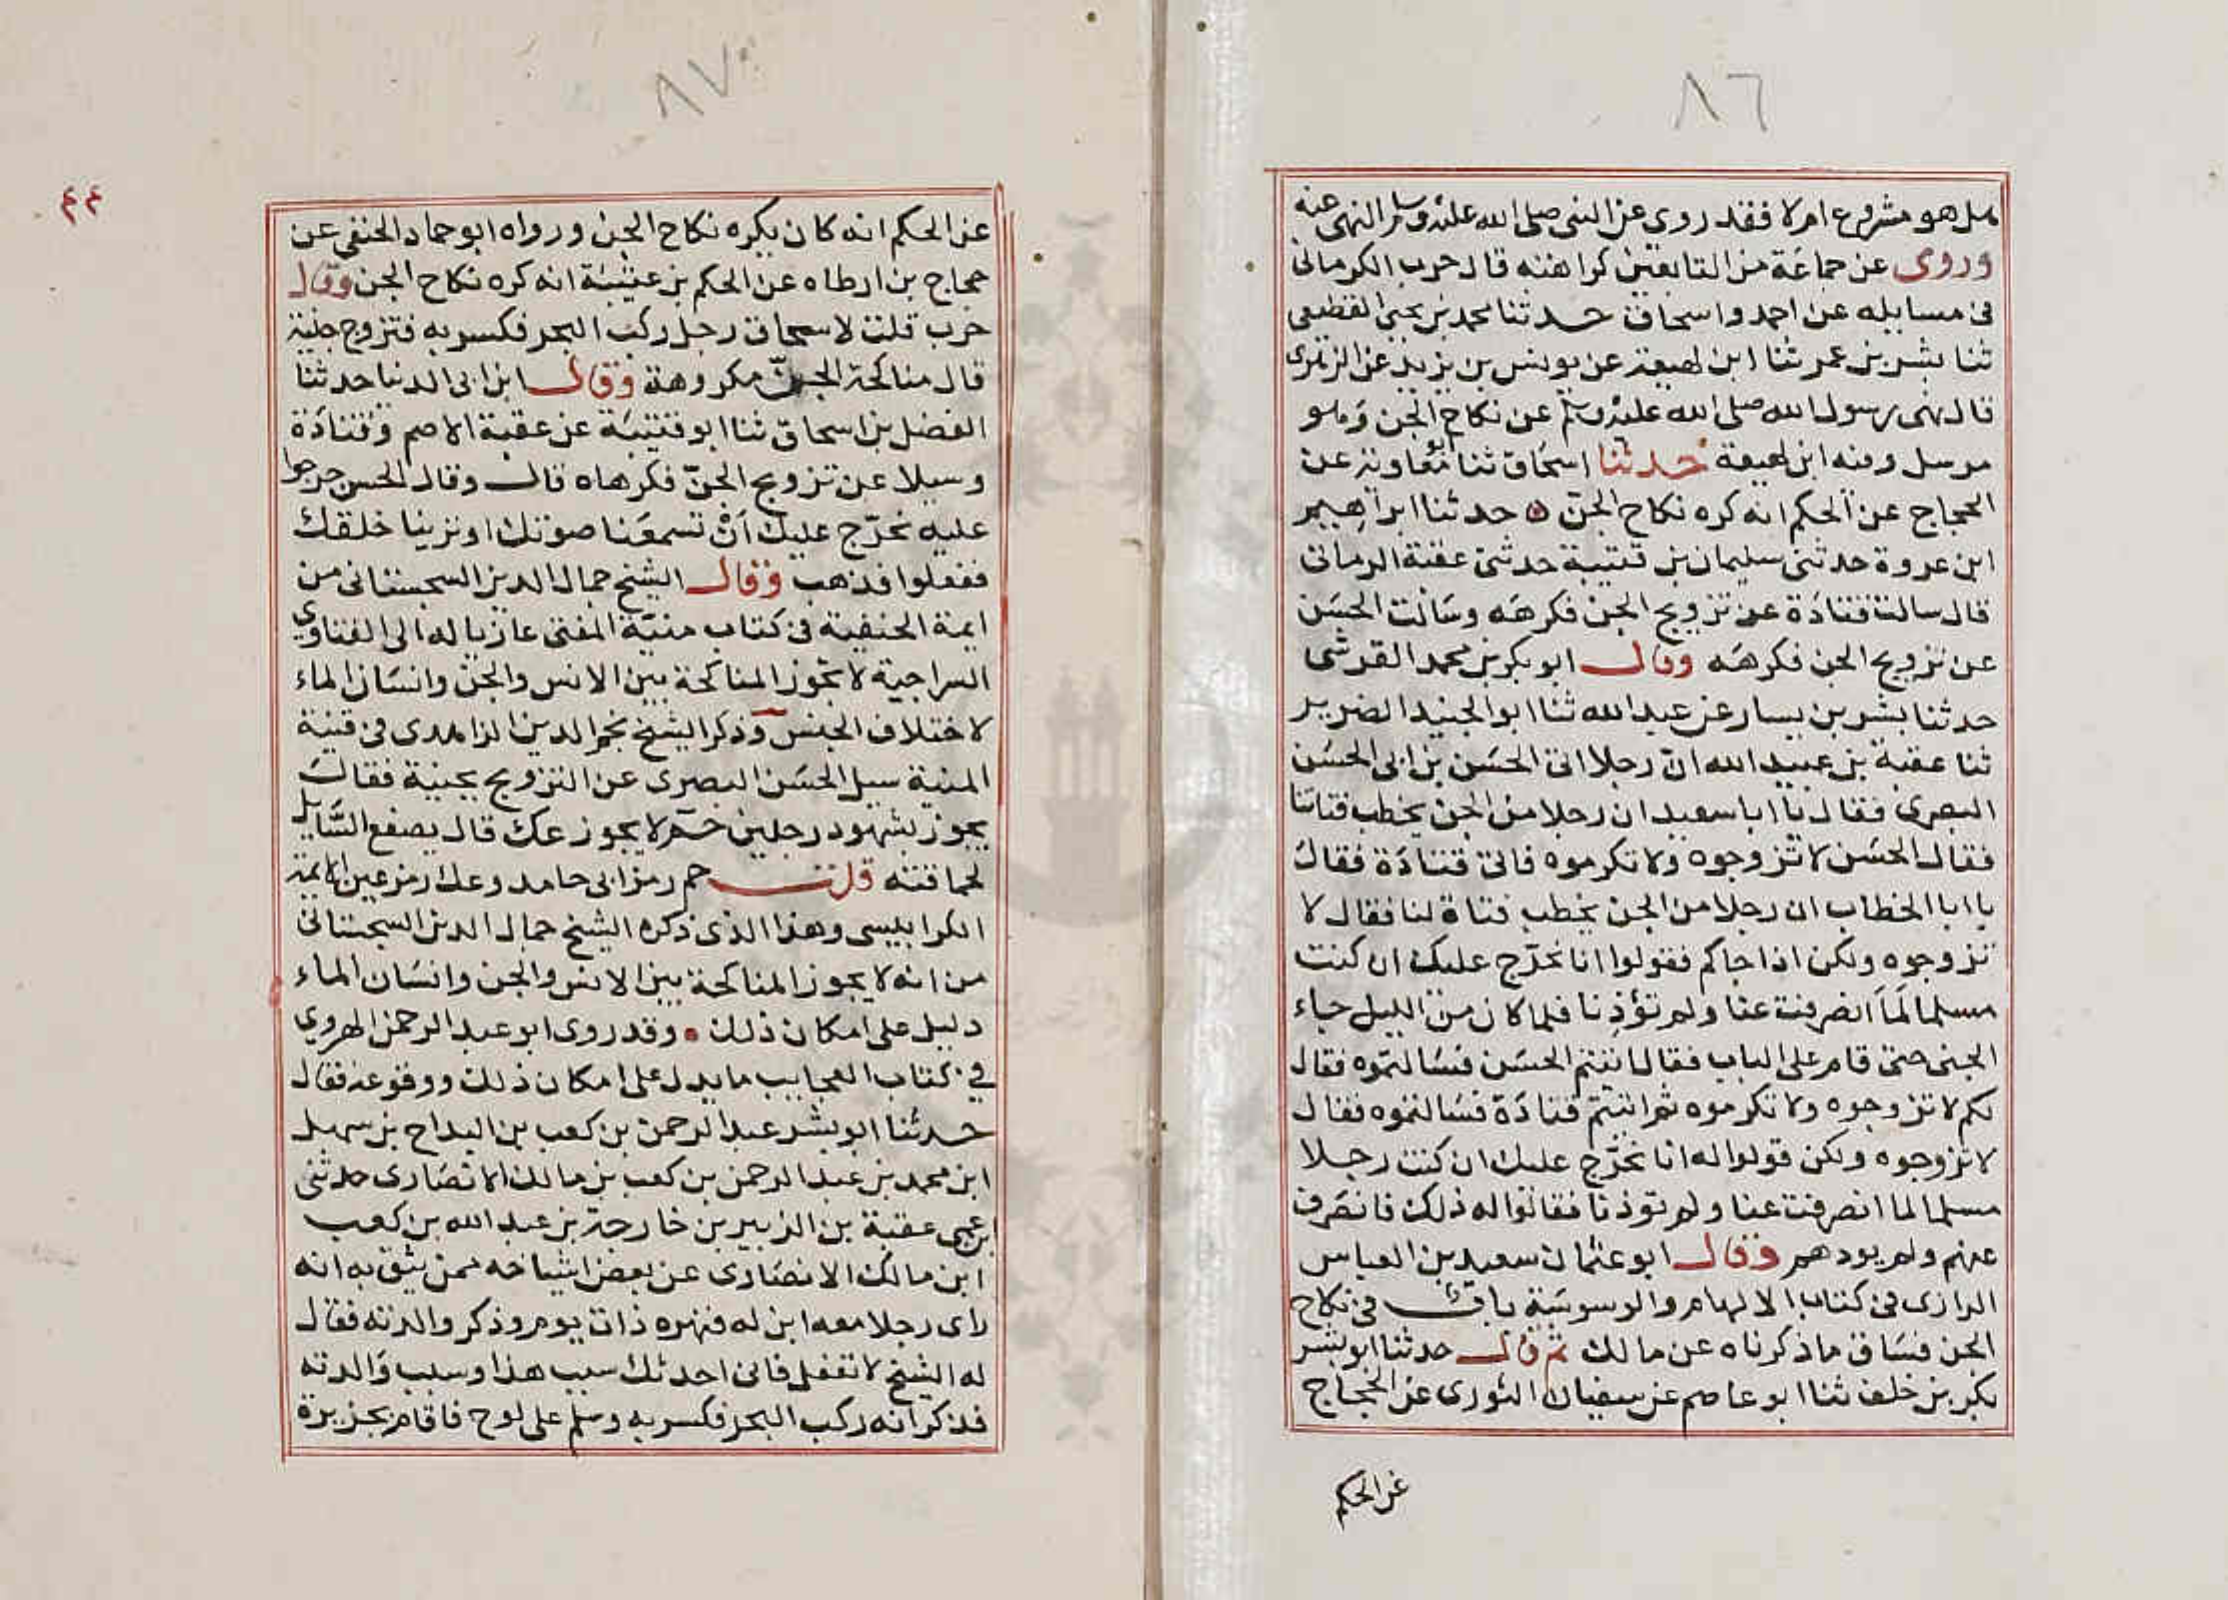 ٨٦
هل هو مشروع ام لا فقد روى عن النبى صلى الله عليه وسلم النهى عنه
وروى عن جماعة من التابعين كراهته قال حرب الكرمانى
فى مسايله عن احمد واسحاق حدثنا محمد بن يحيى القطيعى
ثنا بشر بن عمر ثنا ابن لهيعة عن يونس بن يزيد عن الزهرى
قال نهى رسول الله صلى الله عليه وسلم عن نكاح الجن وهو
مرسل وفيه ابن لهيعة حدثنا اسحاق ثنا ابو معاوية عن
الحجاج عن الحكم انه كره نكاح الجن ه حدثنا ابراهيم
ابن عروة حدثنى سليمان بن قتيبة حدثنى عقبة الرمانى
قال سالت قتادة عن تزويج الجن فكرهه وسالت الحسن
عن تزويج الجن فكرهه وقال ابو بكر بن محمد القرشى
حدثنا بشر بن يسار عن عبد الله ثنا ابو الجنيد الضرير
ثنا عقبة بن عبيد الله ان رجلا اتى الحسن بن ابى الحسن
البصرى فقال يا ابا سعيد ان رجلا من الجن يخطب فتاتنا
فقال الحسن لا تزوجوه ولا تكرموه فاتى قتادة فقال
يا ابا الخطاب ان رجلا من الجن يخطب فتاة لنا فقال لا
تزوجوه ولكن اذا جاكم فقولوا انا نحرّج عليك ان كنت
مسلما لَمَا انصرفت عنا ولم تؤذنا فلما كان من الليل جاء
الجنى حتى قام على الباب فقال اتيتم الحسن فسالتموه فقال
لكم لا تزوجوه ولا تكرموه ثم اتيتم قتادة فسالتموه فقال
لا تزوجوه ولكن قولوا له انا نحرّج عليك ان كنت رجلا
مسلما لما انصرفت عنا ولم توذنا فقالوا له ذلك فانصرف
عنهم ولم يودهم وقال ابو عثمان سعيد بن العباس
الرازى فى كتاب الالهام والوسوسة باب فى نكاح
الجن فساق ما ذكرناه عن مالك ثم قال حدثنا ابو بشر
بكر بن خلف ثنا ابو عاصم عن سفيان الثورى عن الحجاج
عن الحكم
٨٧
٤٤
عن الحكم انه كان يكره نكاح الجن ورواه ابو حماد الحنفى عن
حجاج بن ارطاه عن الحكم بن عتيبة انه كره نكاح الجن وقال
حرب قلت لاسحاق رجل ركب البحر فكسر به فتزوج جنية
قال مناكحة الجن مكروهة وقال ابن ابى الدنيا حدثنا
الفضل بن اسحاق ثنا ابو قتيبة عن عقبة الاصم وقتادة
وسيلا عن تزويج الجنّ فكرهاه قال وقال الحسن حرجوا
عليه نحرّج عليك أنْ تسمعنا صوتك او ترينا خلقك
ففعلوا فذهب وقال الشيخ جمال الدين السجستانى من
ايمة الحنفية فى كتاب منية المفتى عازيا له الى الفتاوى
السراجية لا تجوز المناكحة بين الانس والجن وانسان الماء
لاختلاف الجنس وذكر الشيخ نجم الدين الزاهدى فى قنية
المنية سيل الحسن البصرى عن التزويج بجنية فقال
يجوز بشهود رجلين حم لا يجوز عك قال يصفع السّايل
لحماقته قلت حم رمز ابى حامد وعك رمز عين الايمة
الكرابيسى وهذا الذى ذكره الشيخ جمال الدين السجستانى
من انه لا يجوز المناكحة بين الانس والجن وانسان الماء
دليل على امكان ذلك وقد روى ابو عبد الرحمن الهروى
فى كتاب العجايب ما يدل على امكان ذلك ووقوعه فقال
حدثنا ابو بشر عبد الرحمن بن كعب بن البداح بن سهل
ابن محمد بن عبد الرحمن بن كعب بن مالك الانصارى حدثنى
عمى عقبة بن الزبير بن خارجة بن عبد الله بن كعب
ابن مالك الانصارى عن بعض اشياخه ممن يثق به انه
راى رجلا معه ابن له فنهره ذات يوم وذكر والدته فقال
له الشيخ لا تفعل فانى احدثك سبب هذا وسبب والدته
فذكر انه ركب البحر فكسر به وسلم على لوح فاقام بجزيرة